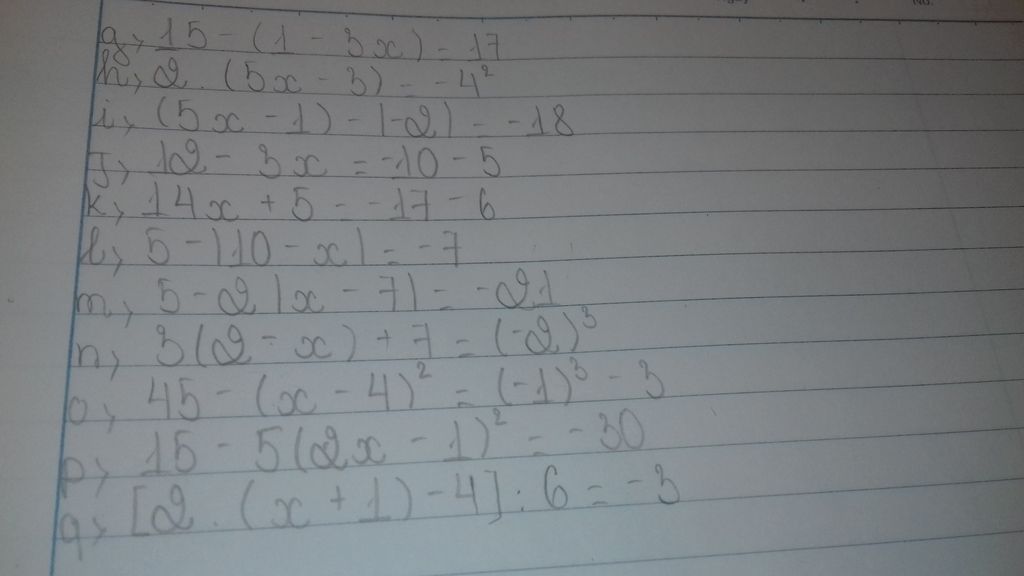 g, 15 - (1 - 3x) = 17
h, 2 . (5x - 3) = -4²
i, (5x - 1) - |-2| = -18
J, 12 - 3x = -10 - 5
k, 14x + 5 = -17 - 6
l, 5 - |10 - x| = -7
m, 5 - 2|x - 7| = -21
n, 3(2 - x) + 7 = (-2)³
o, 45 - (x - 4)² = (-1)³ - 3
p, 15 - 5(2x - 1)² = -30
q, [2 . (x + 1) - 4] : 6 = -3